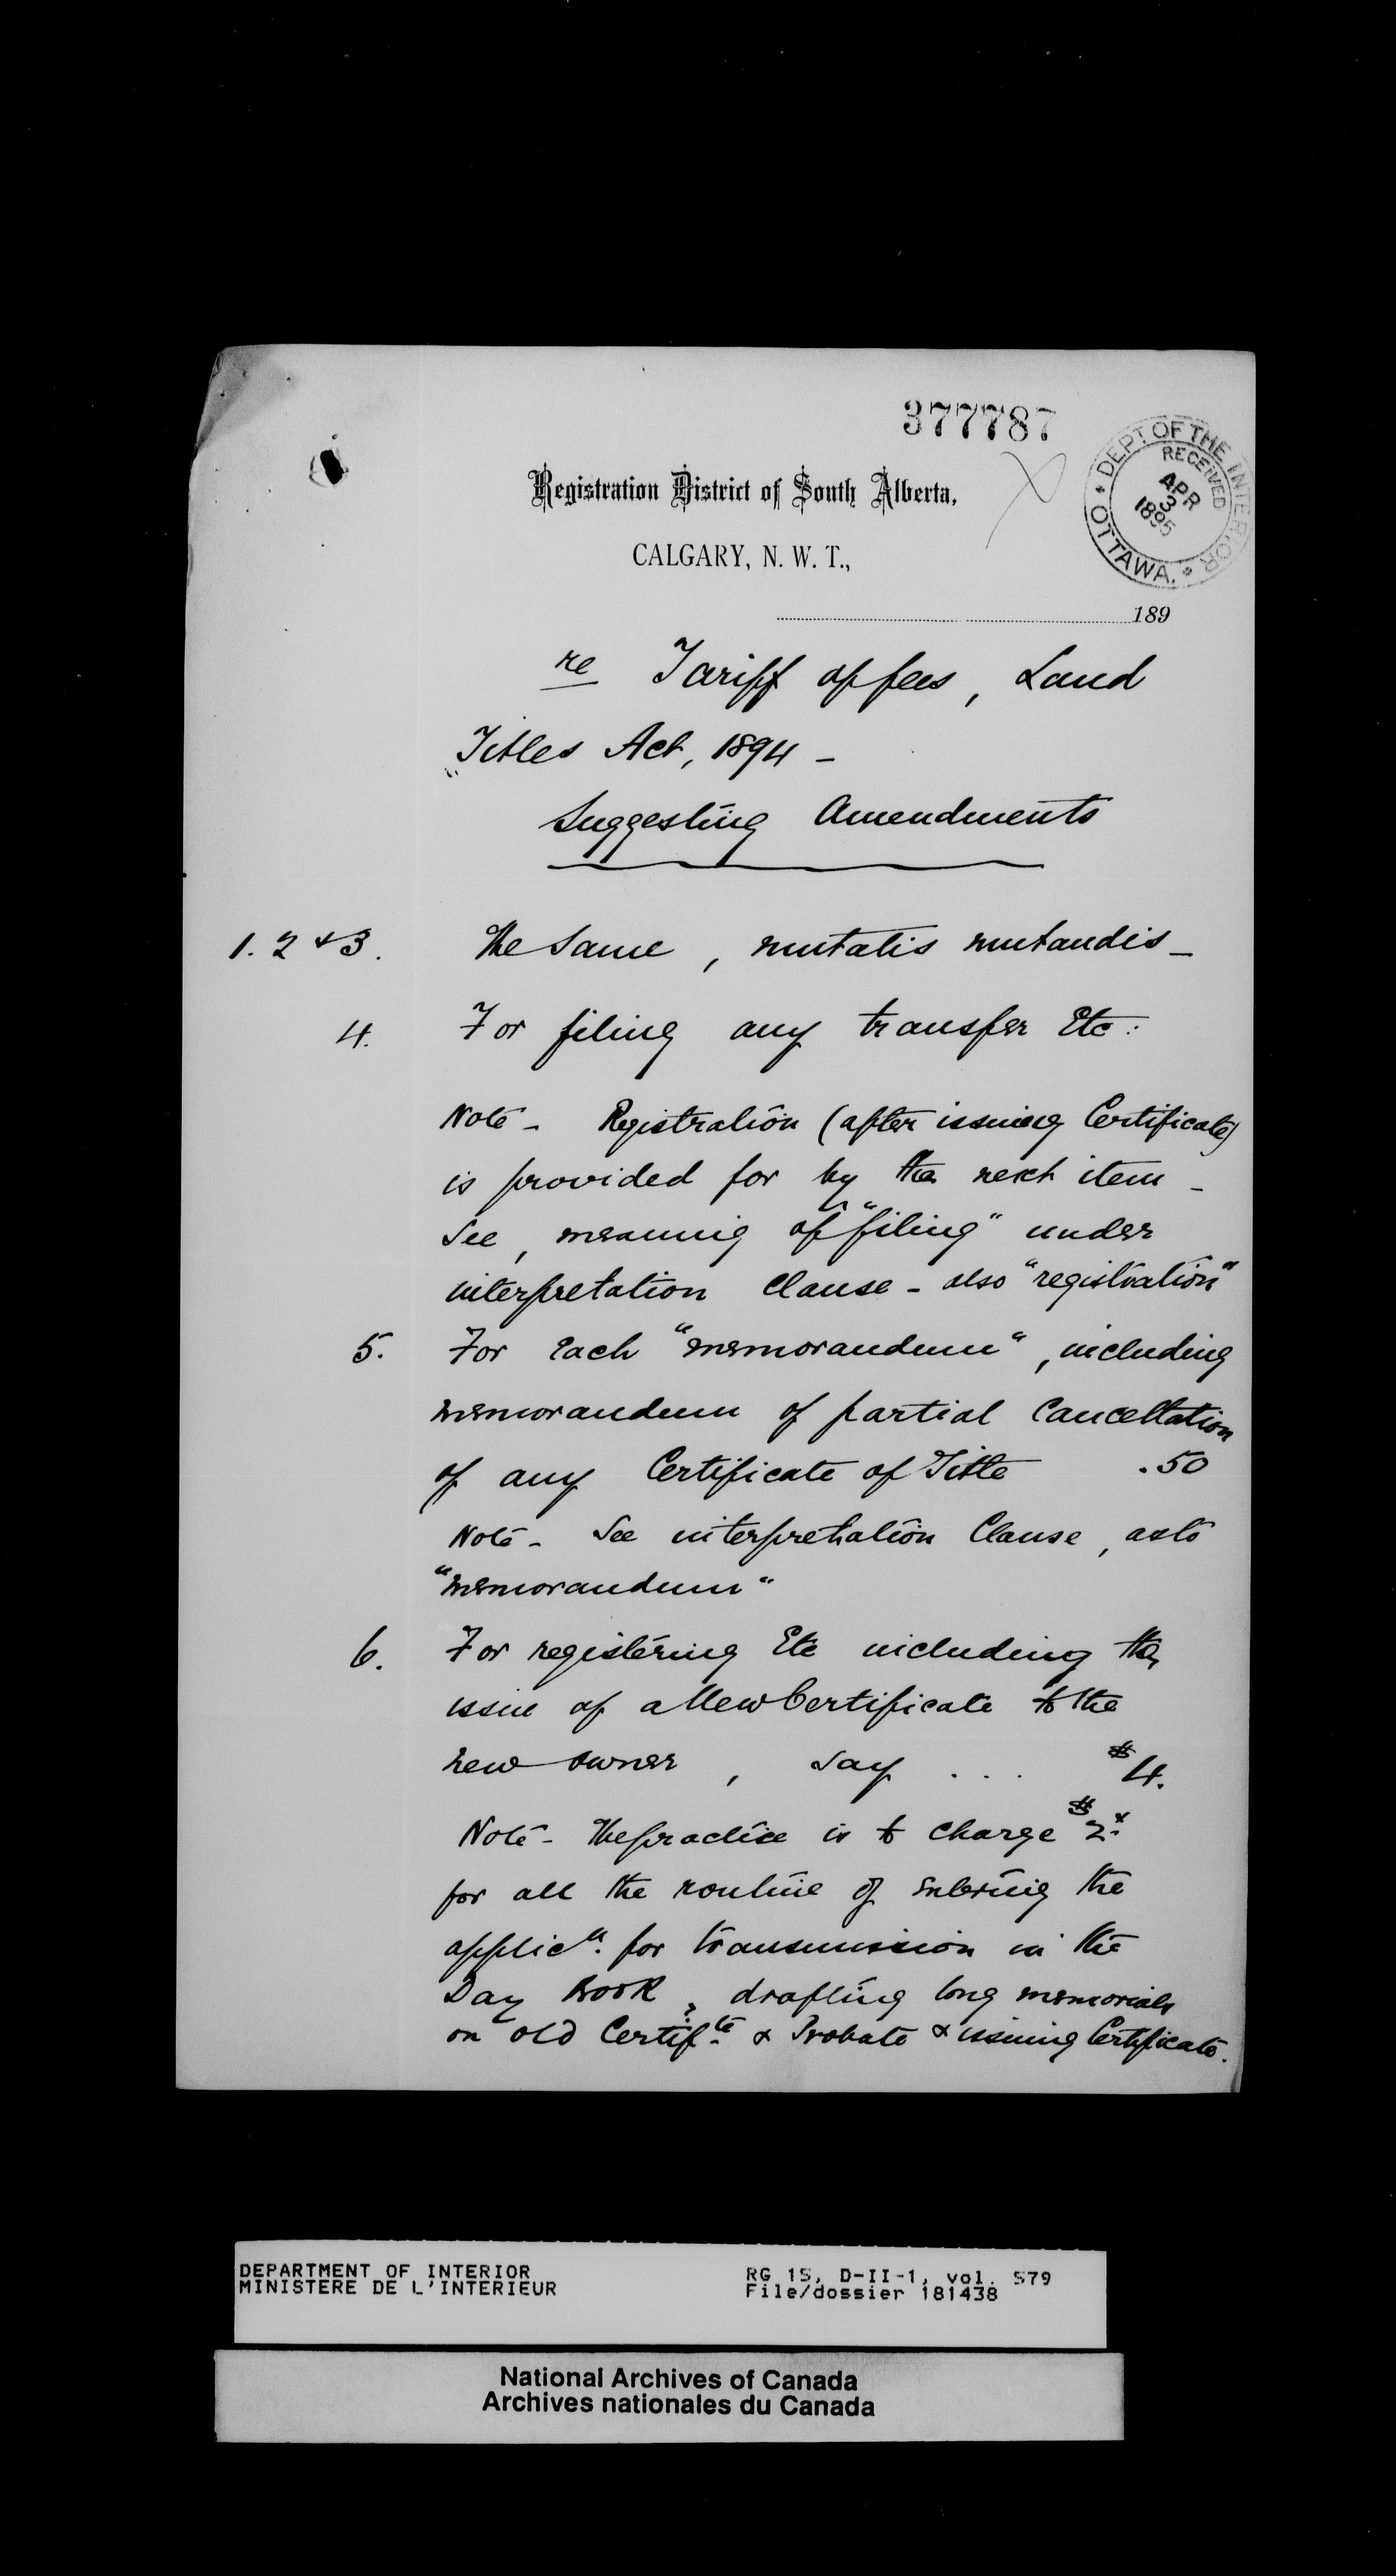 377787
DEPT OF THE INTERIOR
RECEIVED
APR
3
1895
OTTAWA.
Registration District of South Alberta,
CALGARY, N. W. T.,
189
re Tariff of fees, Land
Titles Act, 1894 -
Suggesting Amendments
1. 2 & 3. The Same, mutatis mutandis -
4. For filing any transfer Etc:
Note - Registration (after issuing Certificate)
is provided for by the next item -
See, meaning of "filing" under
interpretation Clause - also "registration"
5. For Each "memorandum", including
memorandum of partial Cancellation
of any Certificate of Title .50
Note - See interpretation Clause, as to
"memorandum"
6. For registering Etc including the
issue of a New Certificate to the
new owner, say . . . $4.
Note - The practice is to charge $2.
for all the routine of entering the
applicn. for transmission in the
Day Book, drafting long memorials
on old Certifte & Probate & issuing Certificate.
DEPARTMENT OF INTERIOR
MINISTERE DE L'INTERIEUR
RG 15, D-II-1, vol. 579
File/dossier 181438
National Archives of Canada
Archives nationales du Canada